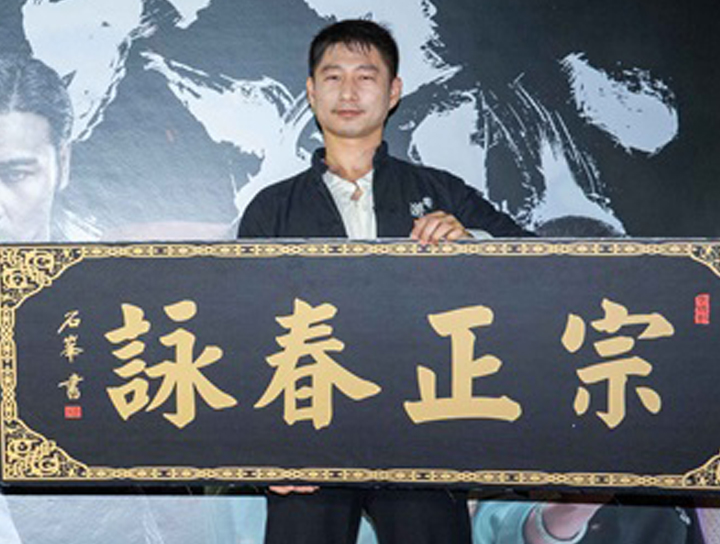 詠春正宗
石峯書